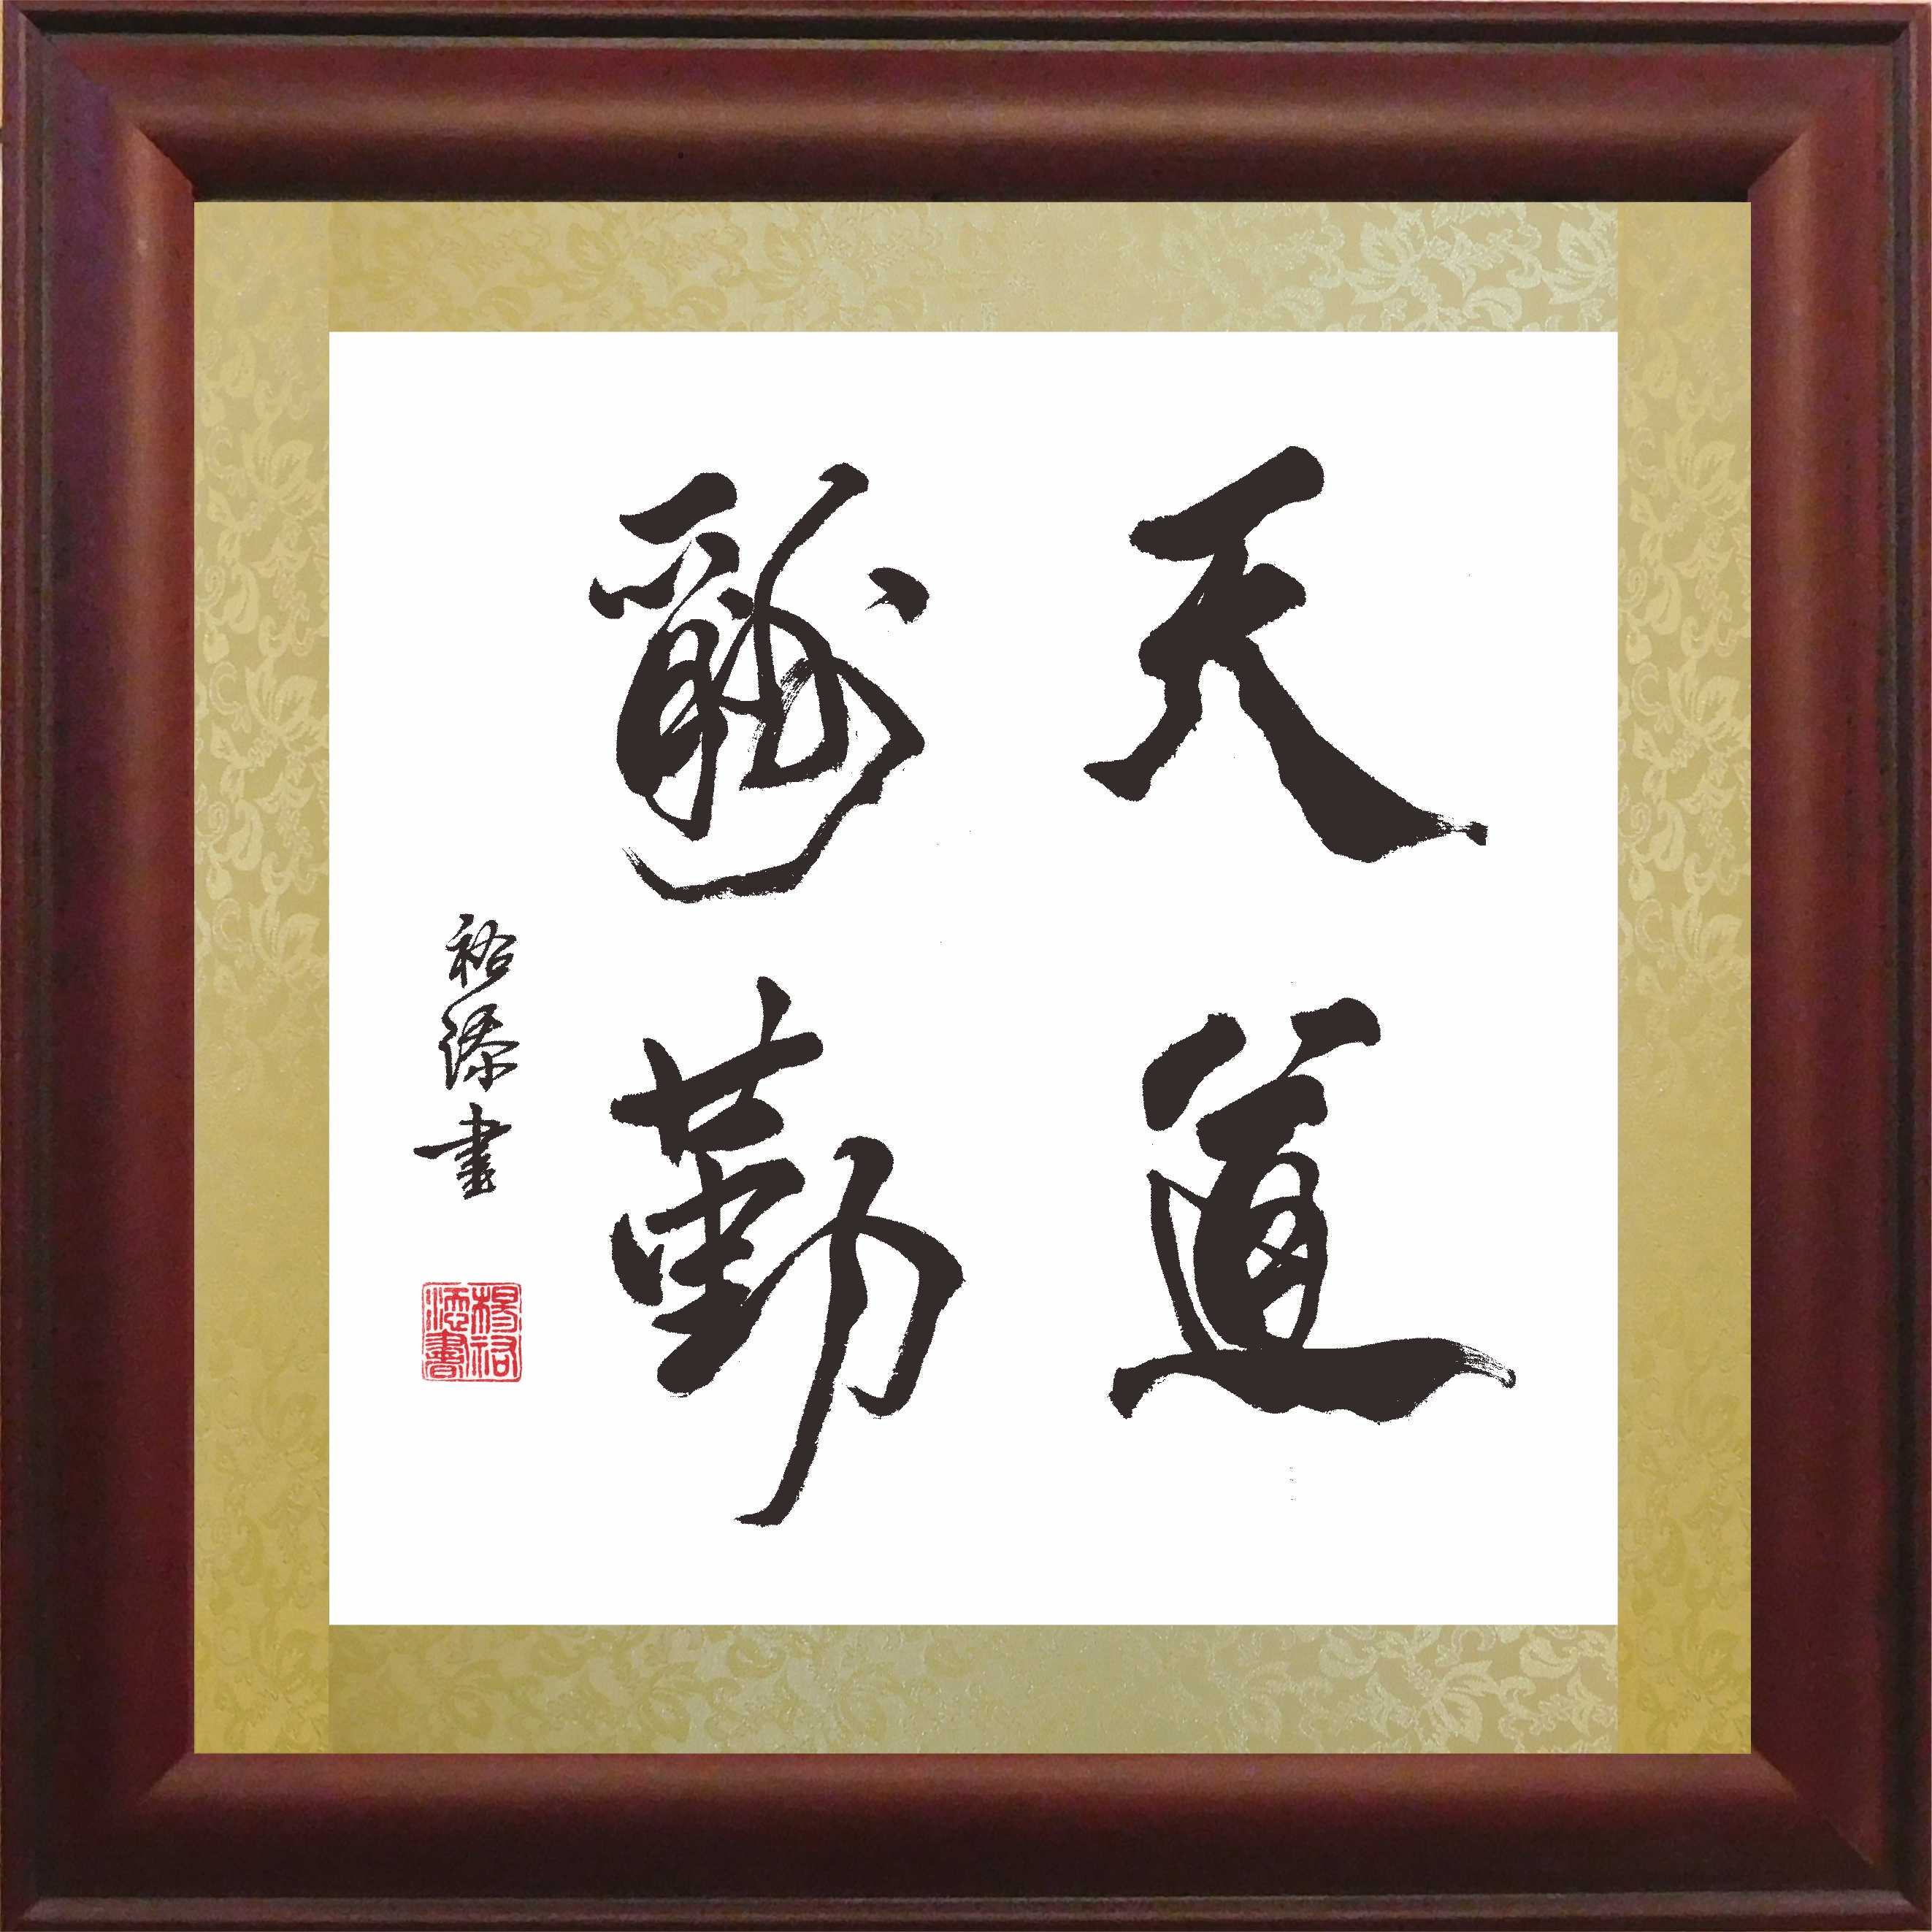 天道
酬勤
裕添書
楊裕
添書